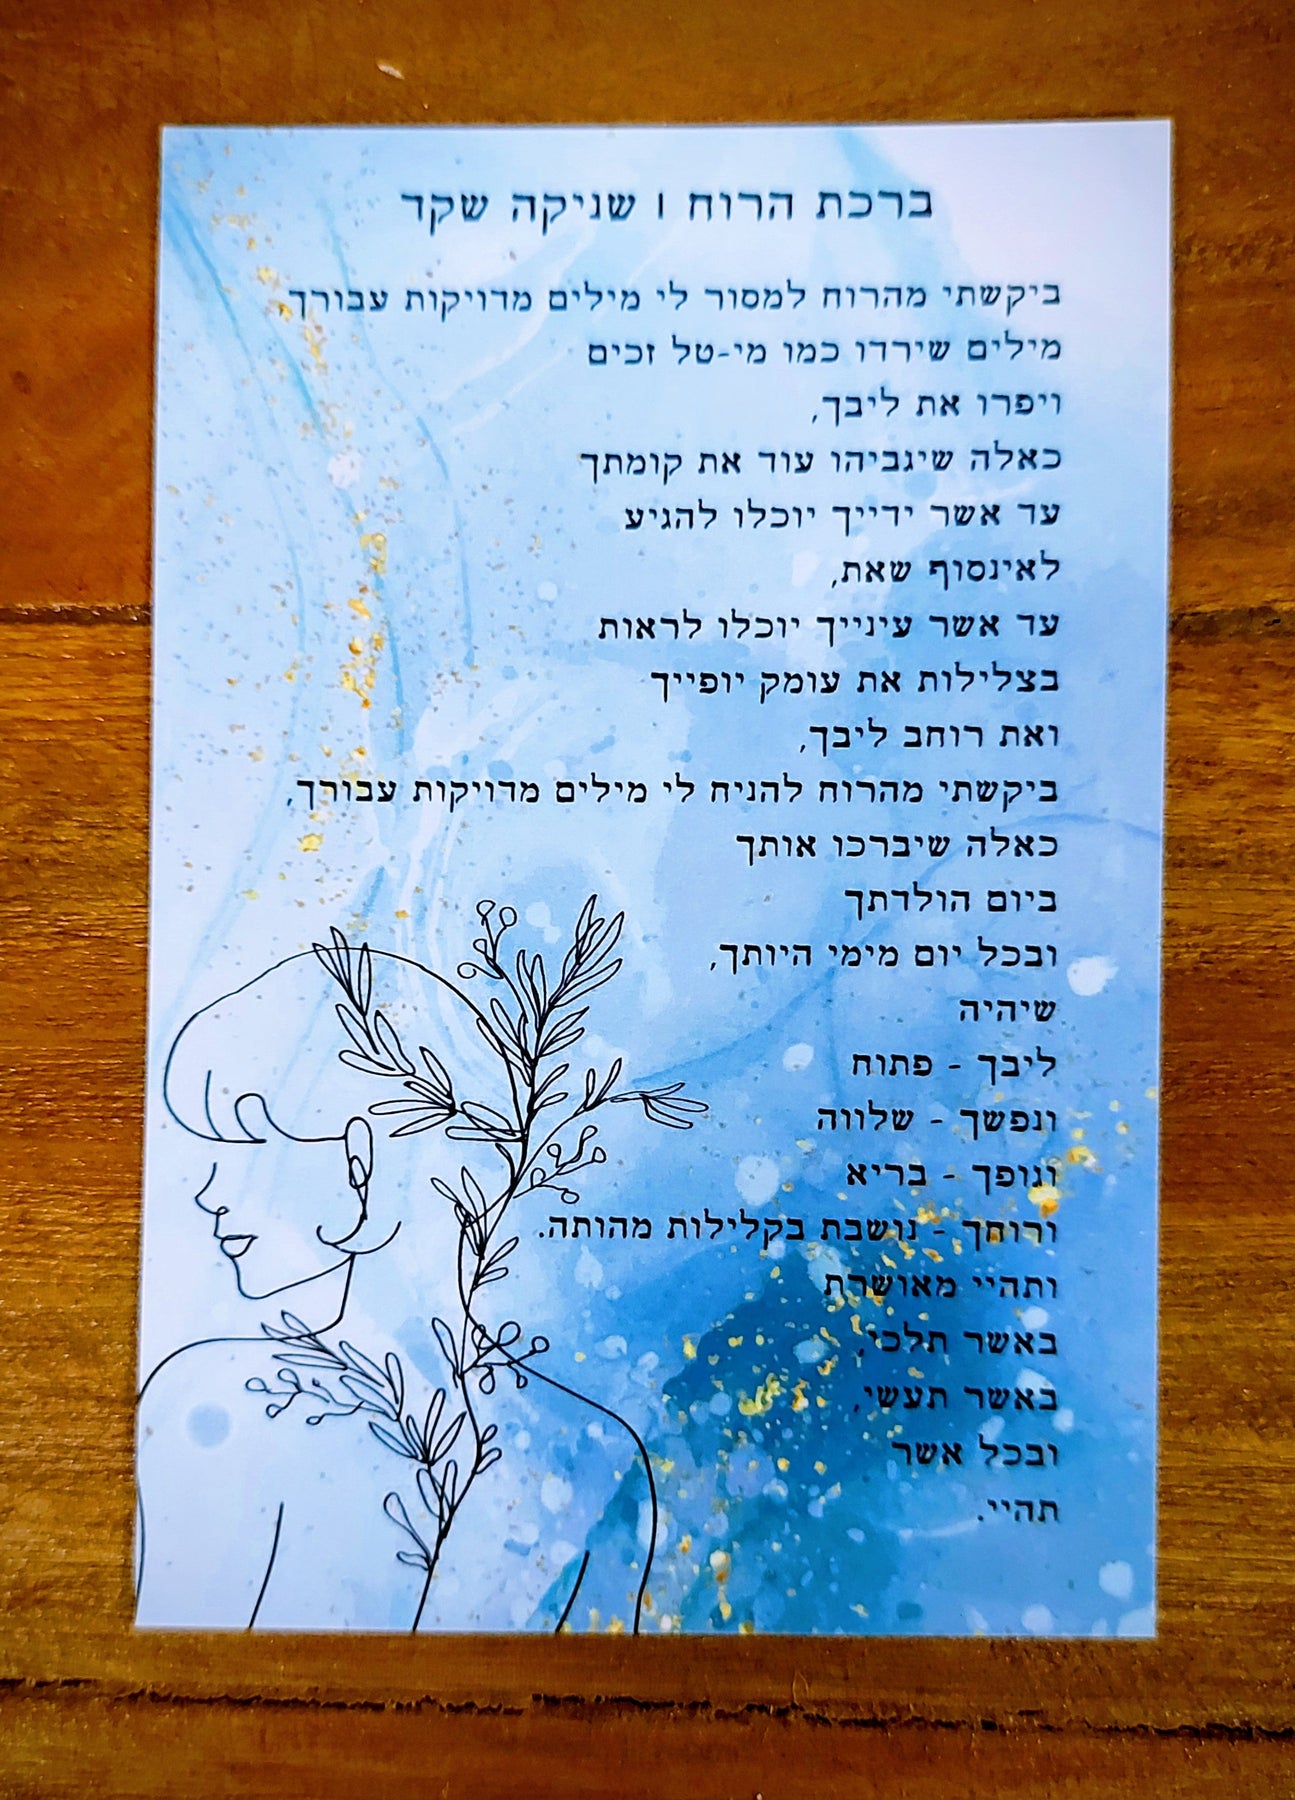 ברכת הרוח ו שניקה שקד
ביקשתי מהרוח למסור לי מילים מדויקות עבורך
מילים שירדו כמו מי-טל זכים
ויפרו את ליבך,
כאלה שיגביהו עוד את קומתך
עד אשר ידייך יוכלו להגיע
לאינסוף שאת,
עד אשר עינייך יוכלו לראות
בצלילות את עומק יופייך
ואת רוחב ליבך,
ביקשתי מהרוח להניח לי מילים מדויקות עבורך,
כאלה שיברכו אותך
ביום הולדתך
ובכל יום מימי היותך,
שיהיה
ליבך - פתוח
ונפשך - שלווה
וגופך - בריא
ורוחך - נושבת בקלילות מהותה.
ותהיי מאושרת
באשר תלכי,
באשר תעשי,
ובכל אשר
תהיי.